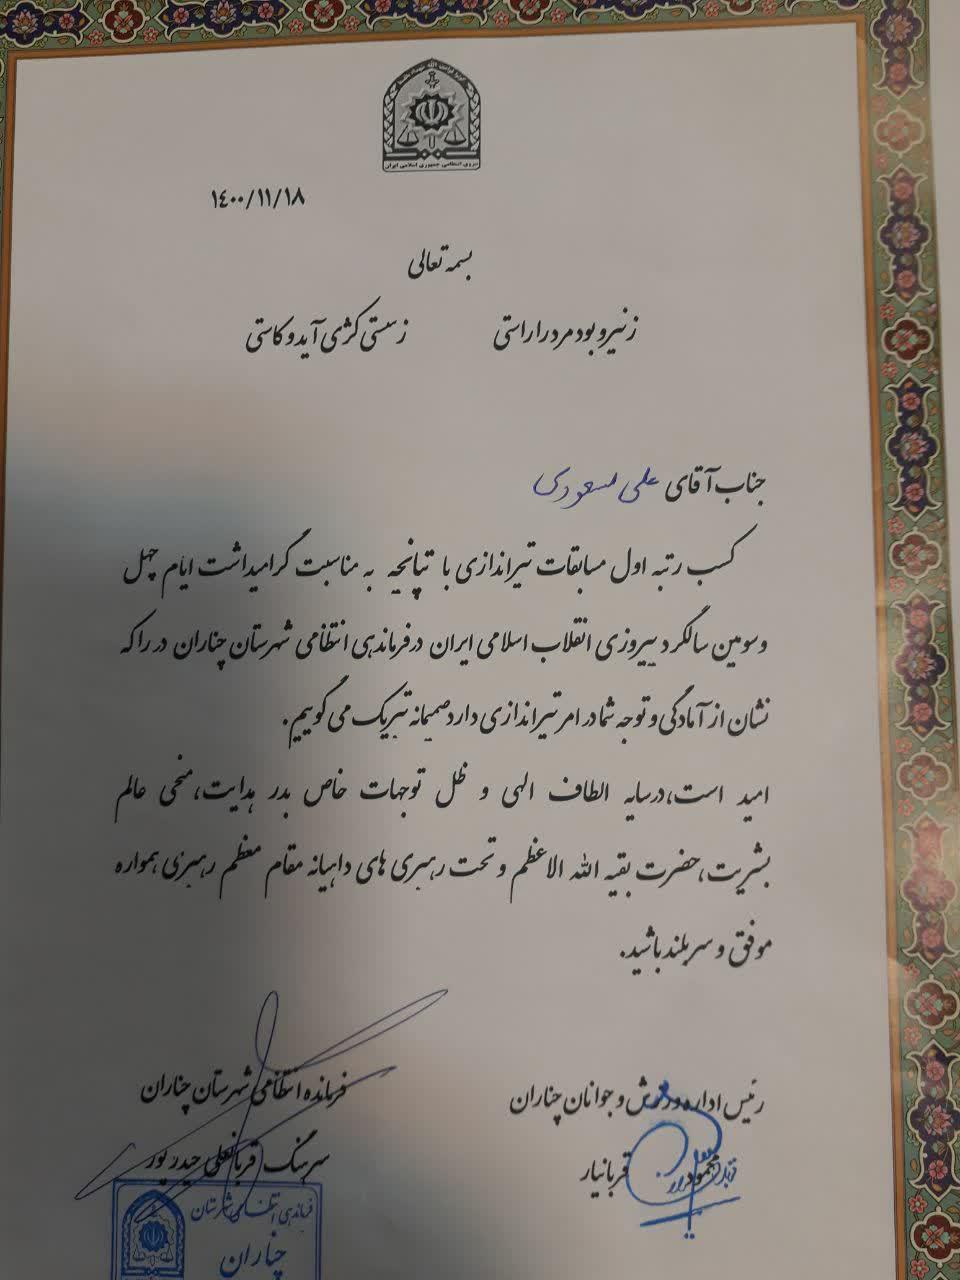 نیروی انتظامی جمهوری اسلامی ایران
۱۴۰۰/۱۱/۱۸
بسمه تعالی
ز نیرو بود مرد را راستی ز سستی کژی آید و کاستی
جناب آقای علی مسعودی
کسب رتبه اول مسابقات تیراندازی با تپانچه به مناسبت گرامیداشت ایام چهل
و سومین سالگرد پیروزی انقلاب اسلامی ایران در فرماندهی انتظامی شهرستان چناران در را که
نشان از آمادگی و توجه شما در امر تیراندازی دارد صمیمانه تبریک می گوییم.
امید است، در سایه الطاف الهی و ظل توجهات خاص بدر هدایت، منجی عالم
بشریت، حضرت بقیه الله الاعظم و تحت رهبری های داهیانه مقام معظم رهبری همواره
موفق و سربلند باشید.
رئیس اداره ورزش و جوانان چناران
محمود قربانیار
فرمانده انتظامی شهرستان چناران
سرهنگ قربانعلی حیدرپور
فرماندهی انتظامی شهرستان
چناران